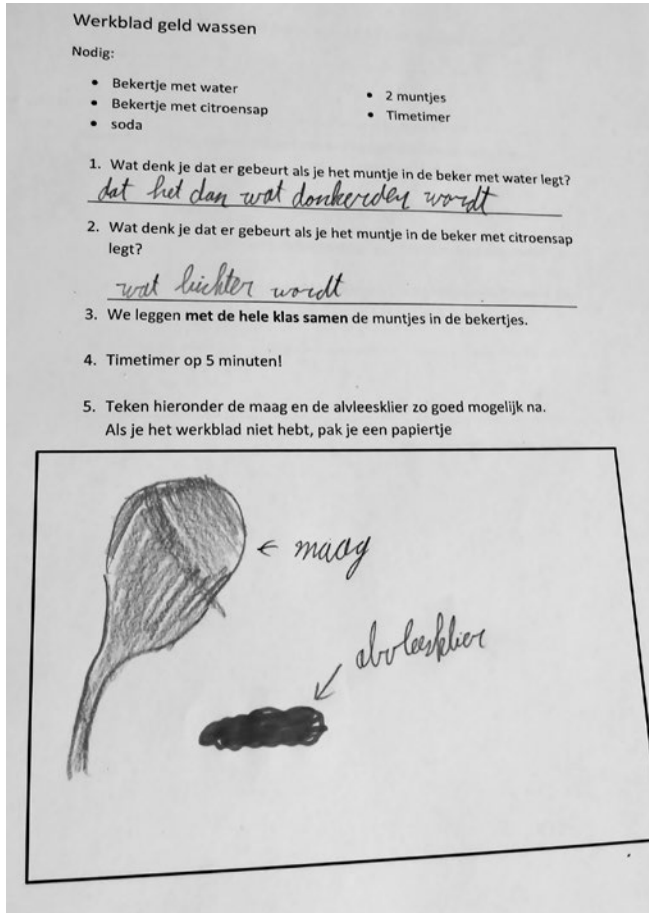 Werkblad geld wassen
Nodig:
• Bekertje met water
• Bekertje met citroensap
• soda
• 2 muntjes
• Timetimer
1. Wat denk je dat er gebeurt als je het muntje in de beker met water legt?
dat het dan wat donkerden wordt
2. Wat denk je dat er gebeurt als je het muntje in de beker met citroensap
legt?
wat lichter wordt
3. We leggen met de hele klas samen de muntjes in de bekertjes.
4. Timetimer op 5 minuten!
5. Teken hieronder de maag en de alvleesklier zo goed mogelijk na.
Als je het werkblad niet hebt, pak je een papiertje
← maag
alvleesklier